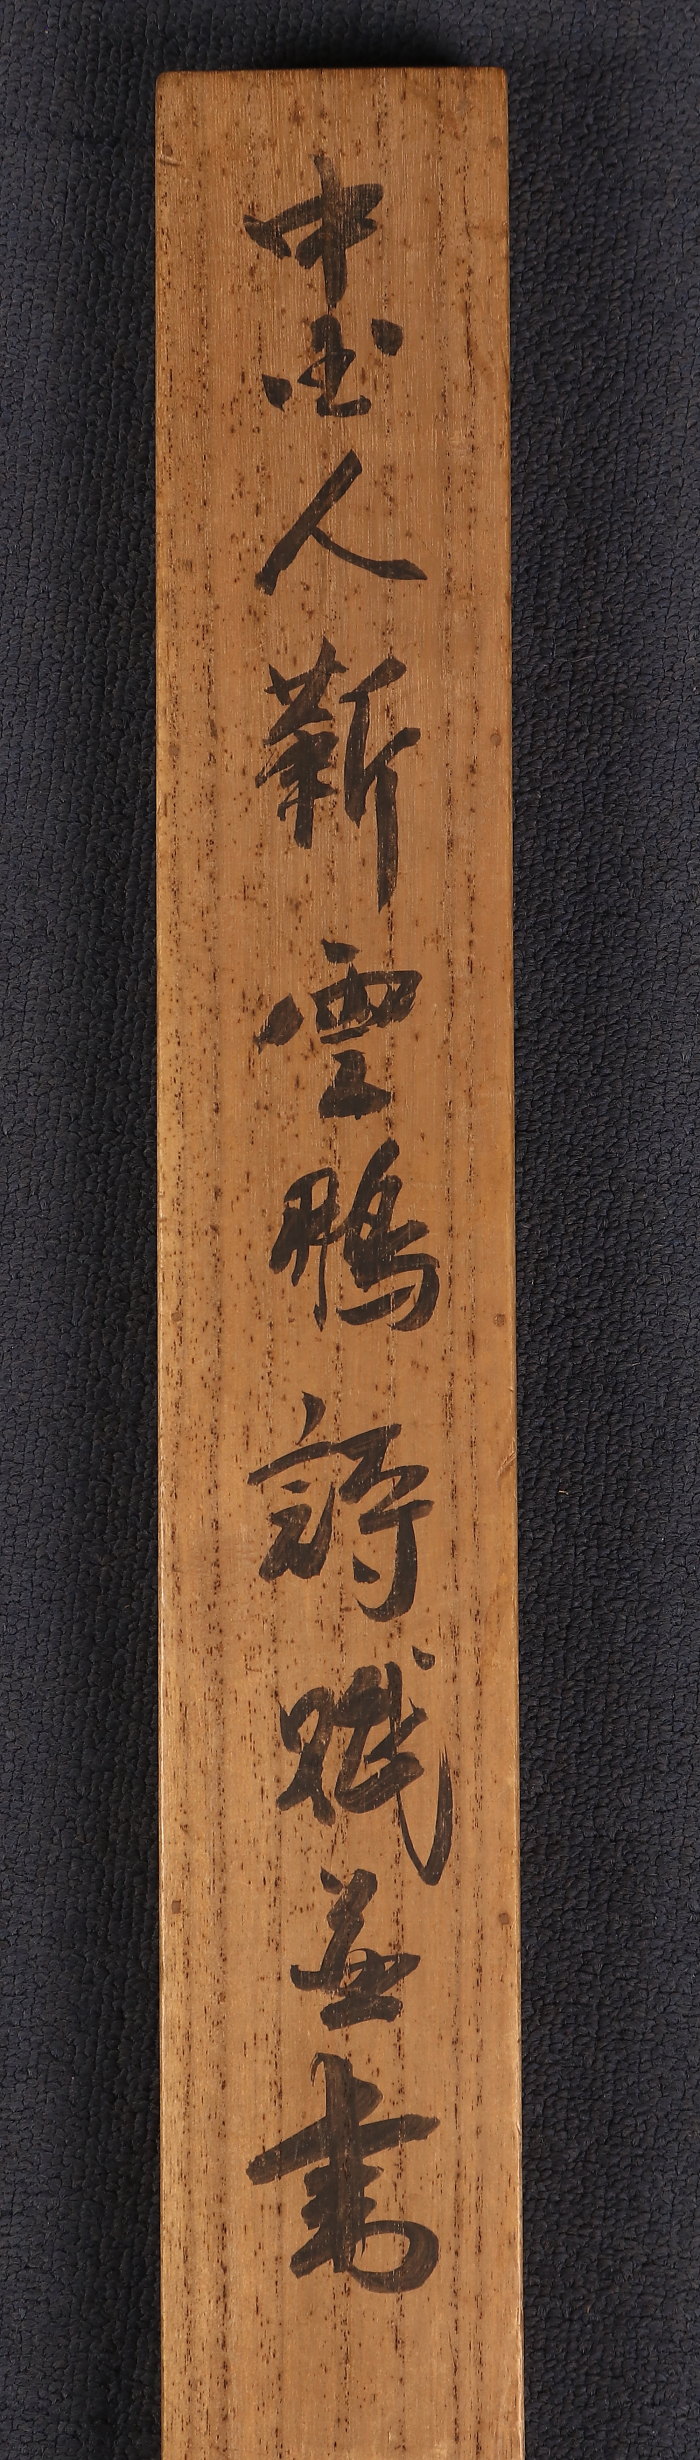 中国人靳雲鵬詩賦並書